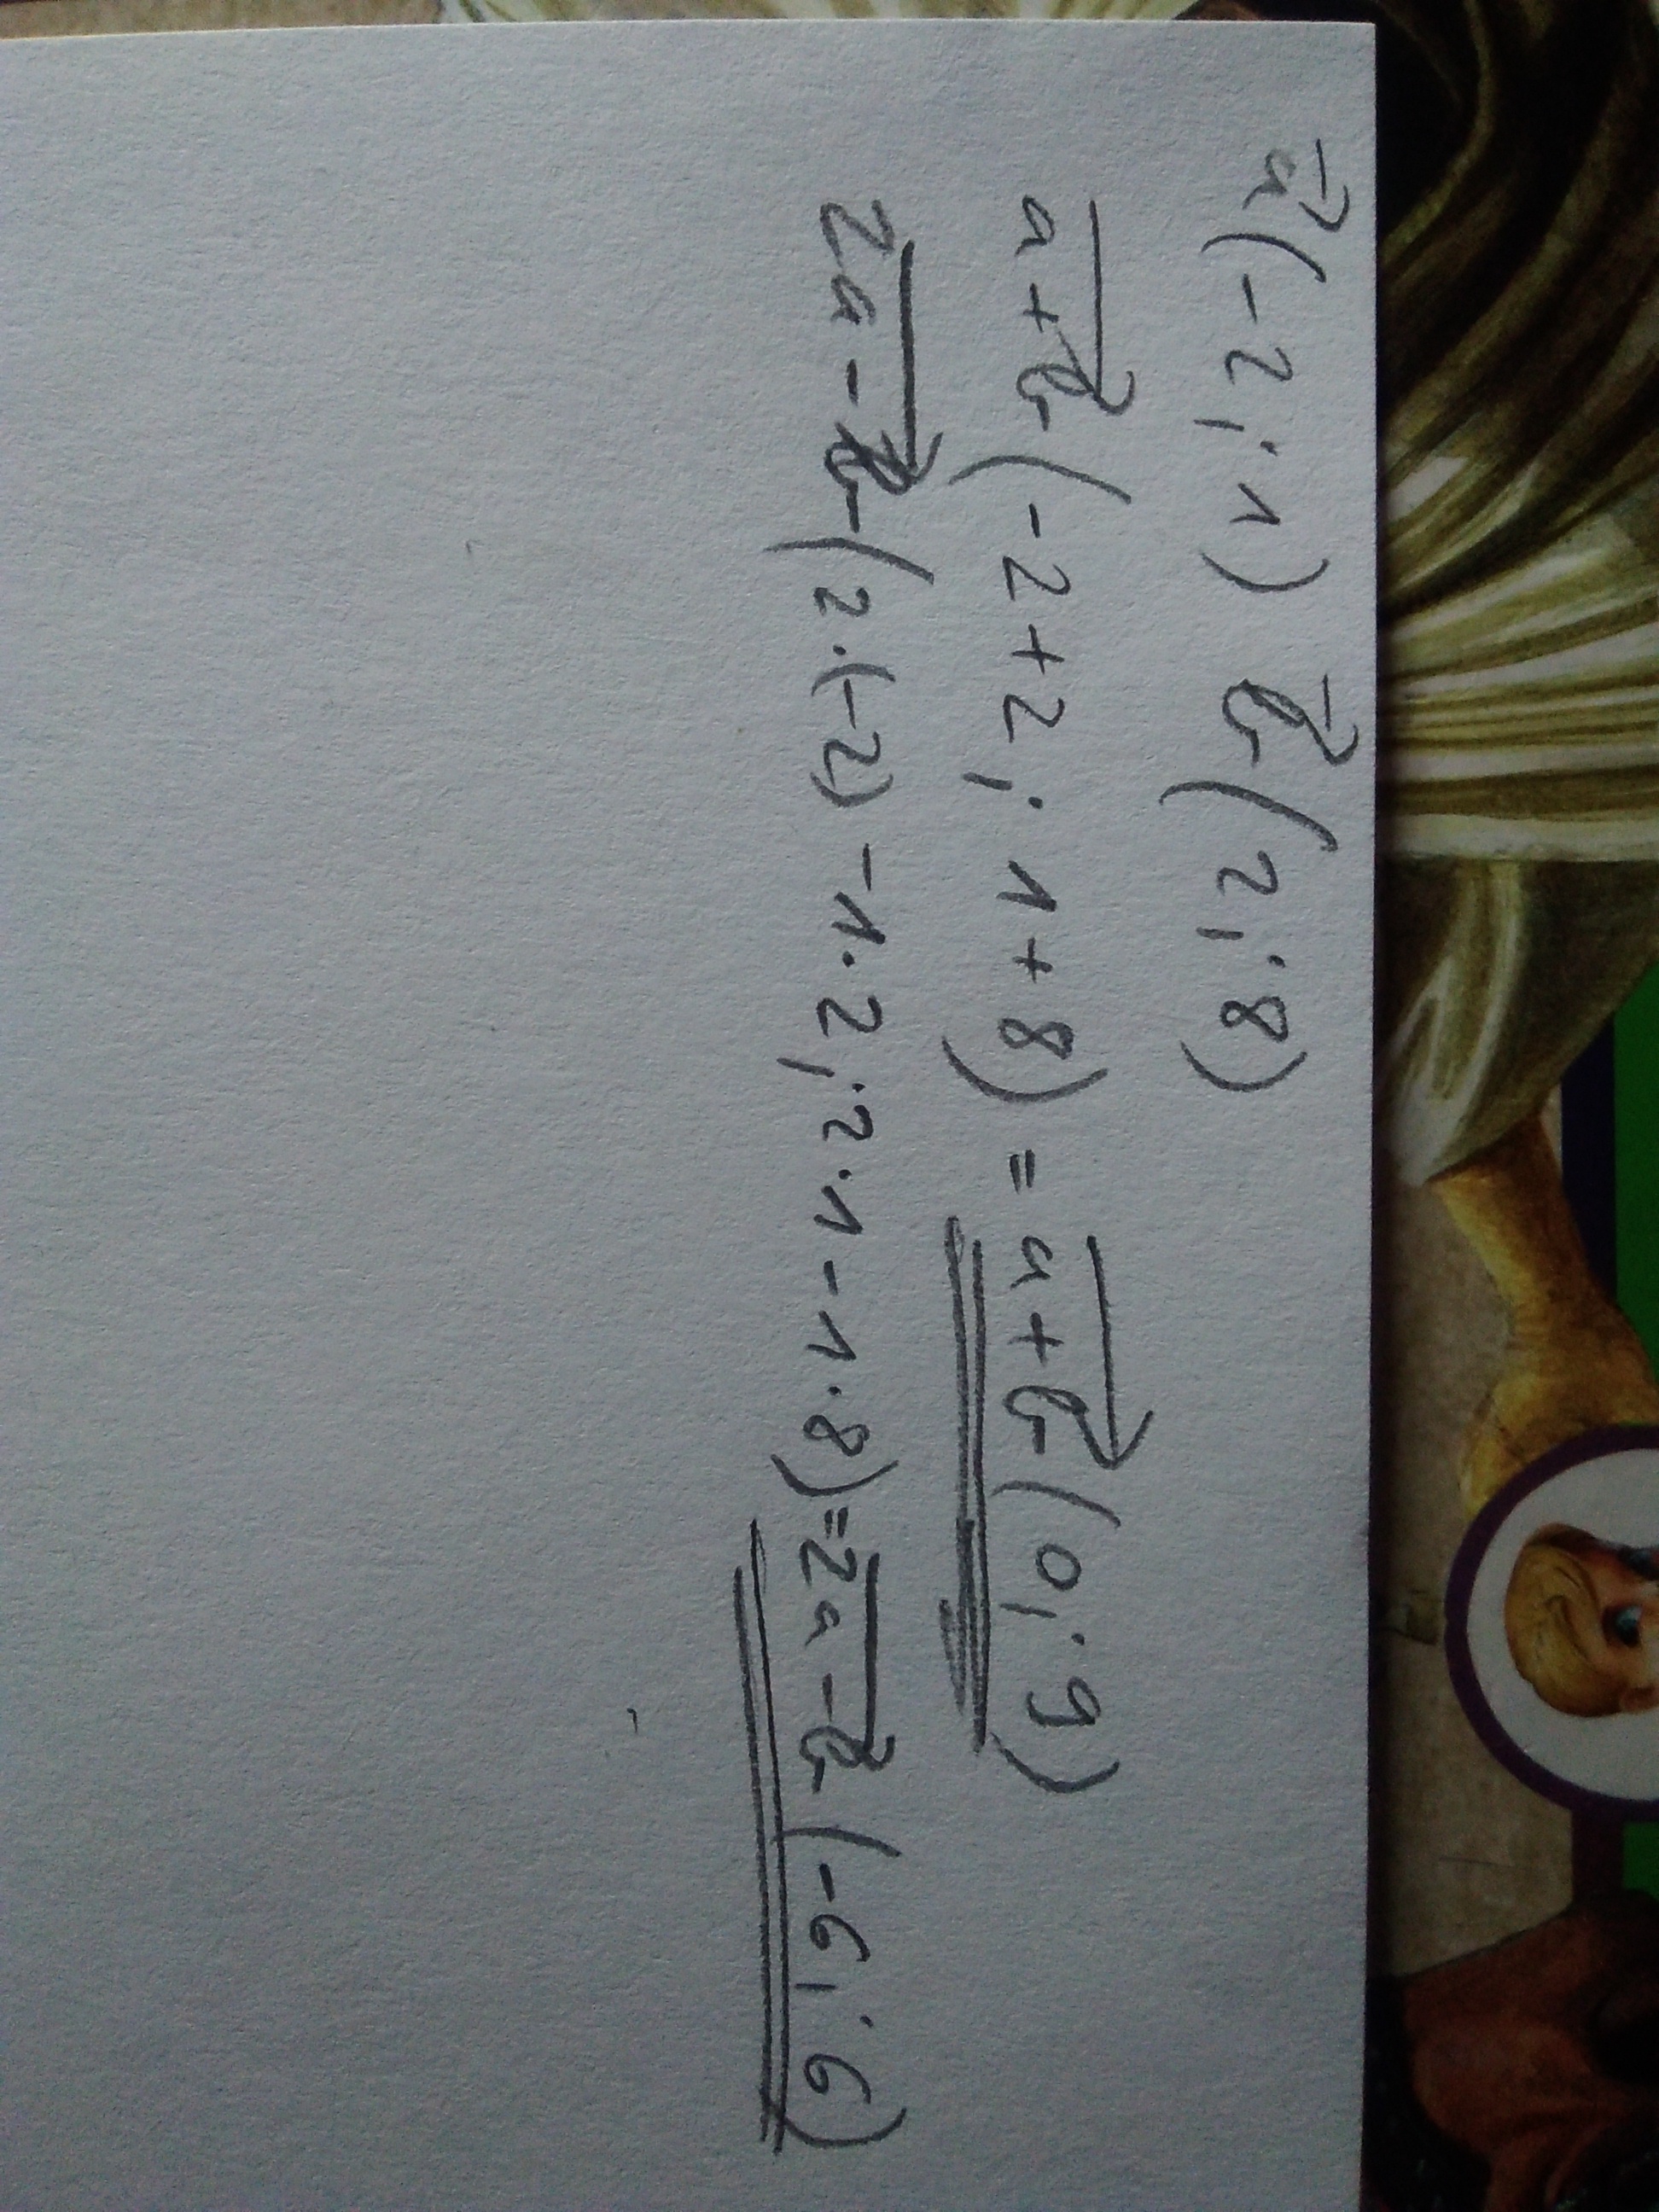 a⃗(-2;1) b⃗(2;8)
a+b⃗(-2+2;1+8)=a+b⃗(0;9)
2a-b⃗(2·(-2)-1·2;2·1-1·8)=2a-b⃗(-6;6)